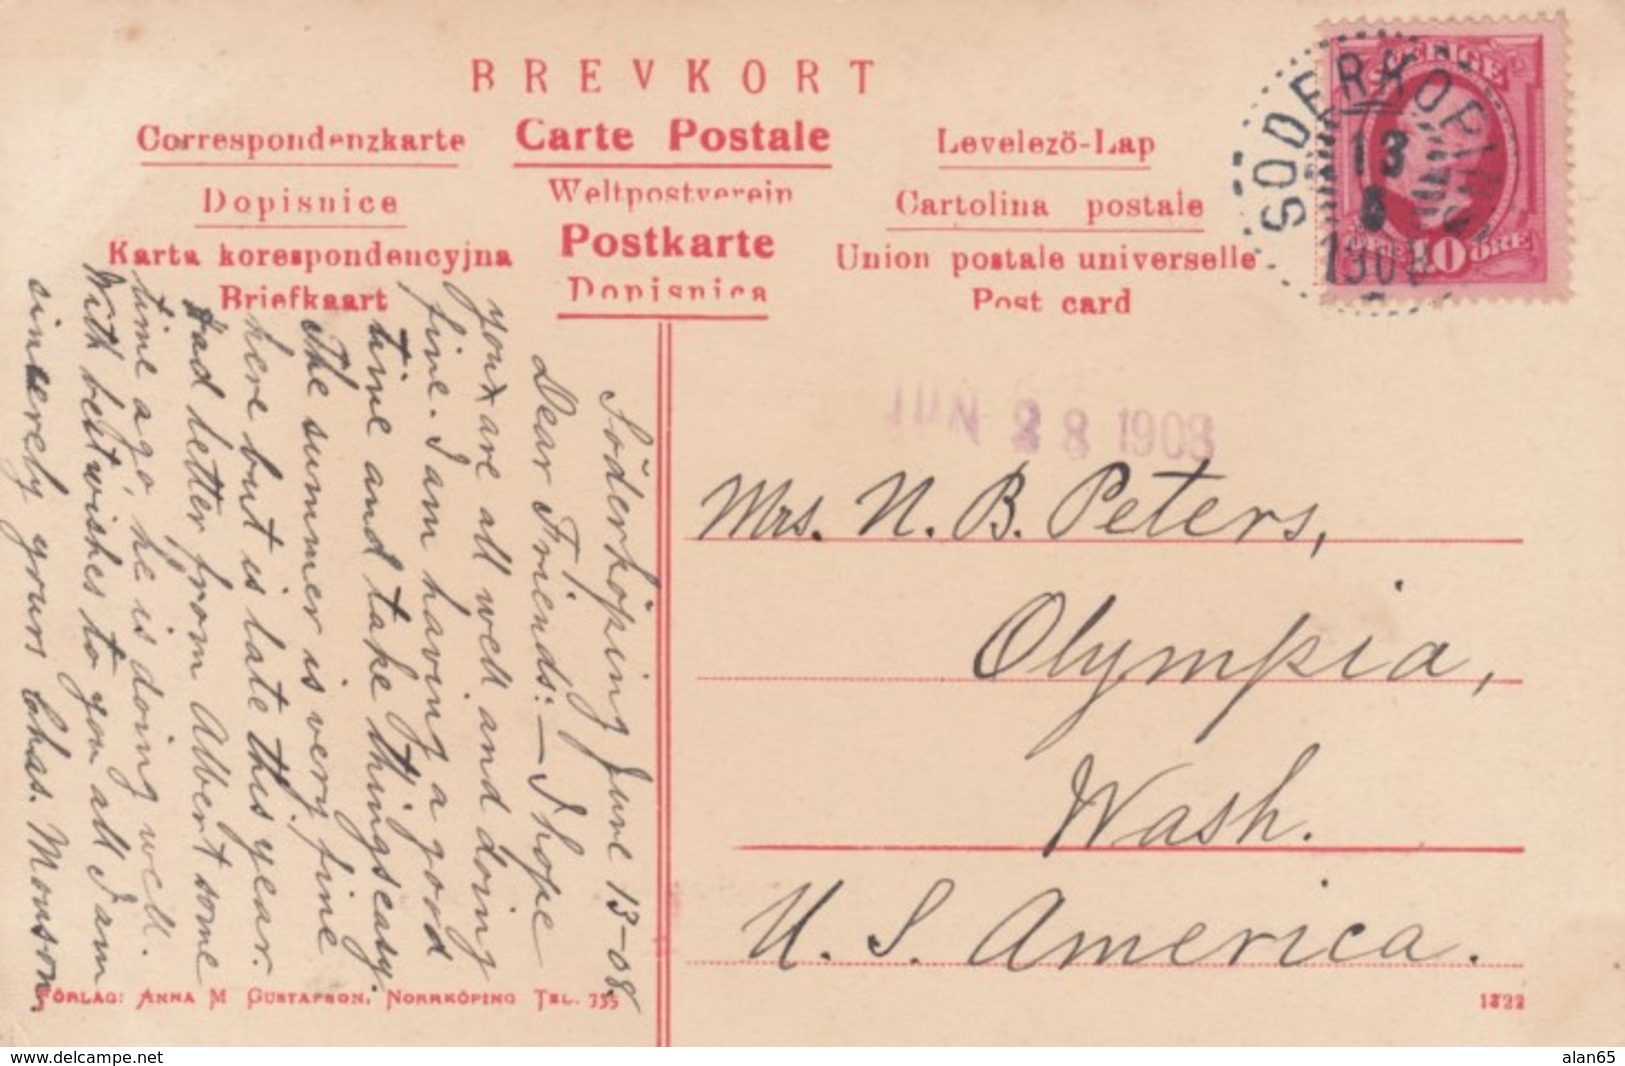 BREVKORT
Correspondenzkarte
Carte Postale
Levelezö-Lap
Dopisnice
Weltpostverein
Cartolina postale
Karta korespondencyjna
Postkarte
Union postale universelle
Briefkaart
Dopisnica
Post card
SVERIGE
10 ÖRE
SÖDERKÖPING
13
6
1908
JUN 28 1908
Mrs. N. B. Peters,
Olympia,
Wash.
U. S. America.
Söderköping June 13-08.
Dear Friends:— I hope
you are all well and doing
fine. I am having a good
time and take things easy.
The summer is very fine
here but is late this year.
Had letter from Albert some
time ago, he is doing well.
With best wishes to you all I am
sincerely yours Chas. Monson.
FÖRLAG: ANNA M GUSTAFSON, NORRKÖPING TEL. 735
1822
www.delcampe.net
alan65